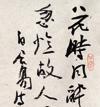 花時同醉
忽憶故人
白居易诗